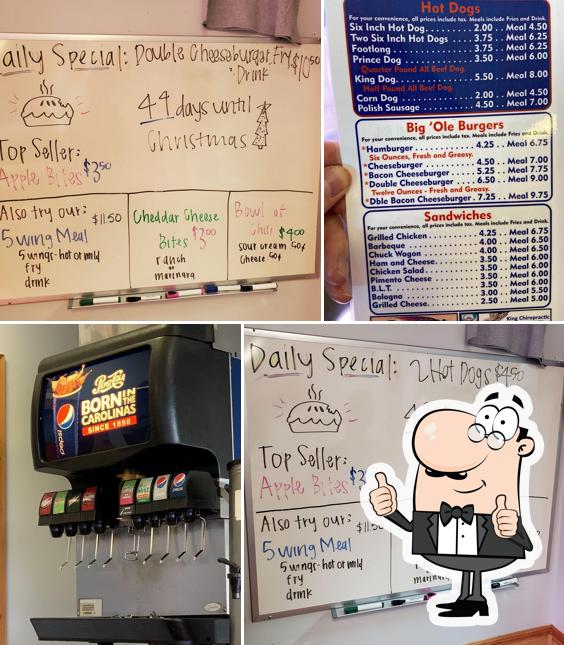 Daily Special: Double Cheeseburger, Fry,
Drink
44 days until
Christmas
Top Seller:
Apple Bites $3.50
Also try our: $11.50
5 Wing Meal
5 wings-hot or mild
fry
drink
Cheddar Cheese
Bites $3.00
ranch
or
marinara
Bowl of
Chili $4.00
sour cream 50¢
cheese 50¢
Hot Dogs
For your convenience, all prices include tax. Meals include Fries and Drink.
Six Inch Hot Dog 2.00 .. Meal 4.50
Two Six Inch Hot Dogs 3.75 .. Meal 6.25
Footlong 3.75 .. Meal 6.25
Prince Dog 3.50 .. Meal 6.00
Quarter Pound All Beef Dog.
King Dog 5.50 .. Meal 8.00
Half Pound All Beef Dog.
Corn Dog 2.00 .. Meal 4.50
Polish Sausage 4.50 .. Meal 7.00
Big 'Ole Burgers
For your convenience, all prices include tax. Meals include Fries and Drink.
*Hamburger 4.25 .. Meal 6.75
Six Ounces, Fresh and Greasy.
*Cheeseburger 4.50 .. Meal 7.00
*Bacon Cheeseburger 5.25 .. Meal 7.75
*Double Cheeseburger 6.50 .. Meal 9.00
Twelve Ounces - Fresh and Greasy.
*Dble Bacon Cheeseburger 7.25 .. Meal 9.75
Sandwiches
For your convenience, all prices include tax. Meals include Fries and Drink.
Grilled Chicken 4.25 .. Meal 6.75
Barbeque 4.00 .. Meal 6.50
Chuck Wagon 4.00 .. Meal 6.50
Ham and Cheese 3.50 .. Meal 6.00
Chicken Salad 3.50 .. Meal 6.00
Pimento Cheese 3.50 .. Meal 6.00
B.L.T. 3.50 .. Meal 6.00
Bologna 3.00 .. Meal 5.50
Grilled Cheese 2.50 .. Meal 5.00
King Chiropractic
Pepsi-Cola
BORN IN THE
CAROLINAS
SINCE 1898
pepsi
Daily Special: 2 Hot Dogs $4.50
Top Seller:
Apple Bites $3
Also try our: $11.50
5 Wing Meal
5 wings-hot or mild
fry
drink
marinara